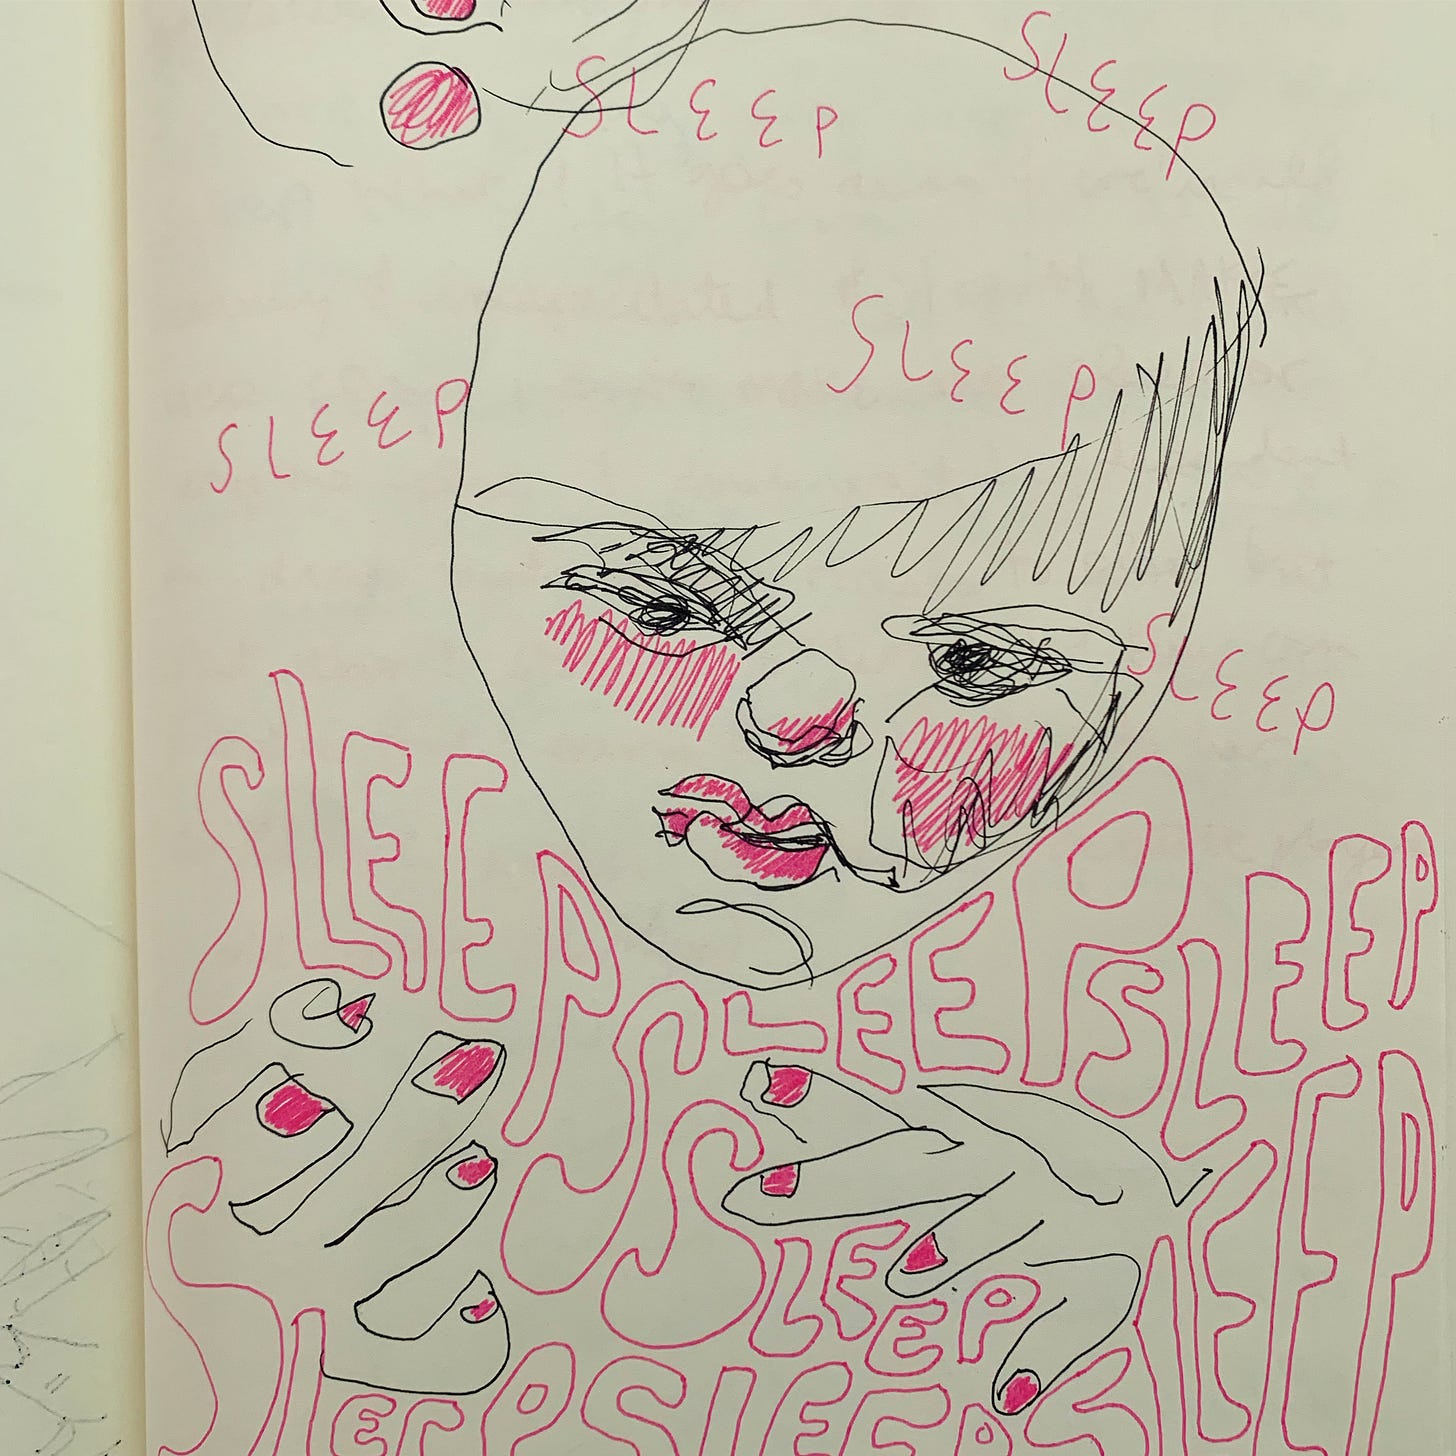 SLEEP
SLEEP
SLEEP
SLEEP
SLEEP
SLEEP
SLEEP
SLEEP
SLEEP
SLEEP
SLEEP
SLEEP
SLEEP